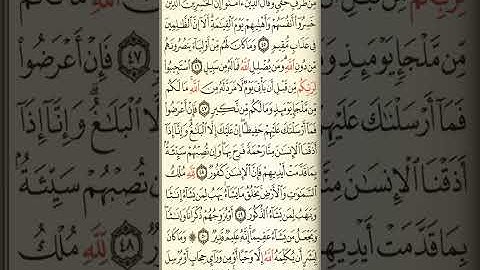 مِن طَرْفٍ خَفِيٍّ وَقَالَ ٱلَّذِينَ ءَامَنُوٓا۟ إِنَّ ٱلْخَـٰسِرِينَ ٱلَّذِينَ
خَسِرُوٓا۟ أَنفُسَهُمْ وَأَهْلِيهِمْ يَوْمَ ٱلْقِيَـٰمَةِ أَلَآ إِنَّ ٱلظَّـٰلِمِينَ
فِى عَذَابٍ مُّقِيمٍ ٤٥ وَمَا كَانَ لَهُم مِّنْ أَوْلِيَآءَ يَنصُرُونَهُم
مِّن دُونِ ٱللَّهِ وَمَن يُضْلِلِ ٱللَّهُ فَمَا لَهُۥ مِن سَبِيلٍ ٤٦ ٱسْتَجِيبُوا۟
لِرَبِّكُم مِّن قَبْلِ أَن يَأْتِىَ يَوْمٌ لَّا مَرَدَّ لَهُۥ مِنَ ٱللَّهِ مَا لَكُم
مِّن مَّلْجَإٍ يَوْمَئِذٍ وَمَا لَكُم مِّن نَّكِيرٍ ٤٧ فَإِنْ أَعْرَضُوا۟
فَمَآ أَرْسَلْنَـٰكَ عَلَيْهِمْ حَفِيظًا إِنْ عَلَيْكَ إِلَّا ٱلْبَلَـٰغُ وَإِنَّآ إِذَآ
أَذَقْنَا ٱلْإِنسَـٰنَ مِنَّا رَحْمَةً فَرِحَ بِهَا وَإِن تُصِبْهُمْ سَيِّئَةٌۢ
بِمَا قَدَّمَتْ أَيْدِيهِمْ فَإِنَّ ٱلْإِنسَـٰنَ كَفُورٌ ٤٨ لِّلَّهِ مُلْكُ
ٱلسَّمَـٰوَٰتِ وَٱلْأَرْضِ يَخْلُقُ مَا يَشَآءُ يَهَبُ لِمَن يَشَآءُ إِنَـٰثًا
وَيَهَبُ لِمَن يَشَآءُ ٱلذُّكُورَ ٤٩ أَوْ يُزَوِّجُهُمْ ذُكْرَانًا وَإِنَـٰثًا
وَيَجْعَلُ مَن يَشَآءُ عَقِيمًا إِنَّهُۥ عَلِيمٌ قَدِيرٌ ٥٠ ۞ وَمَا كَانَ
لِبَشَرٍ أَن يُكَلِّمَهُ ٱللَّهُ إِلَّا وَحْيًا أَوْ مِن وَرَآئِ حِجَابٍ أَوْ يُرْسِلَ